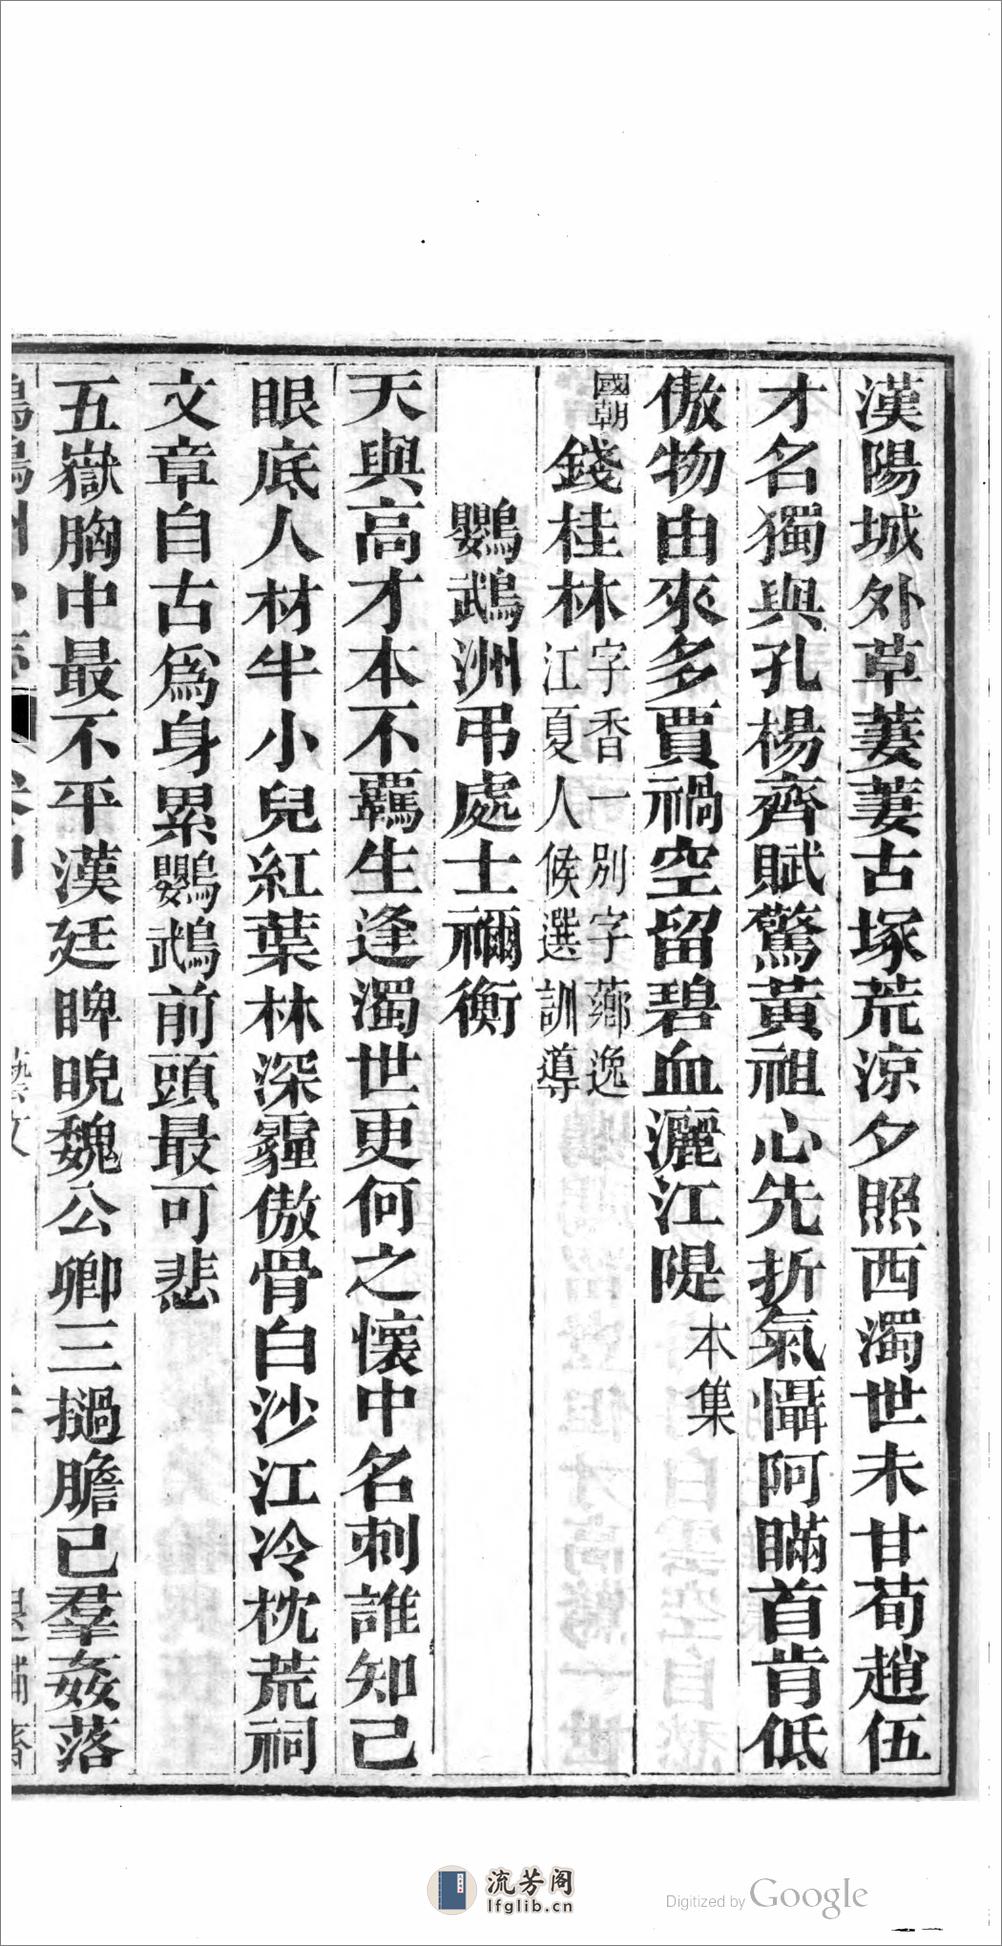 漢陽城外草萋萋古塚荒涼夕照西濁世未甘荀趙伍
才名獨與孔楊齊賦驚黃祖心先折氣懾阿瞞首肯低
傲物由來多賈禍空留碧血灑江隄本集
國朝錢桂林字香一別字薌逸江夏人候選訓導
鸚鵡洲弔處士禰衡
天與高才本不羈生逢濁世更何之懷中名刺誰知己
眼底人材半小兒紅葉林深霾傲骨白沙江冷枕荒祠
文章自古爲身累鸚鵡前頭最可悲
五嶽胸中最不平漢廷睥睨魏公卿三撾膽已羣姦落
藝文
流芳阁
lfglib.cn
Digitized by Google